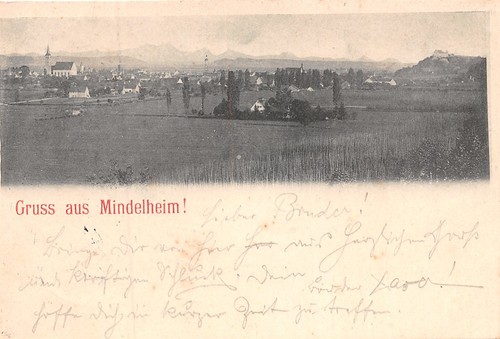 Gruss aus Mindelheim!
Lieber Bruder!
Bringe Dir von hier aus herzlichen Gruß
und kräftigen Schluck. Dein
Bruder
hoffe Dich in kurzer Zeit zu treffen.